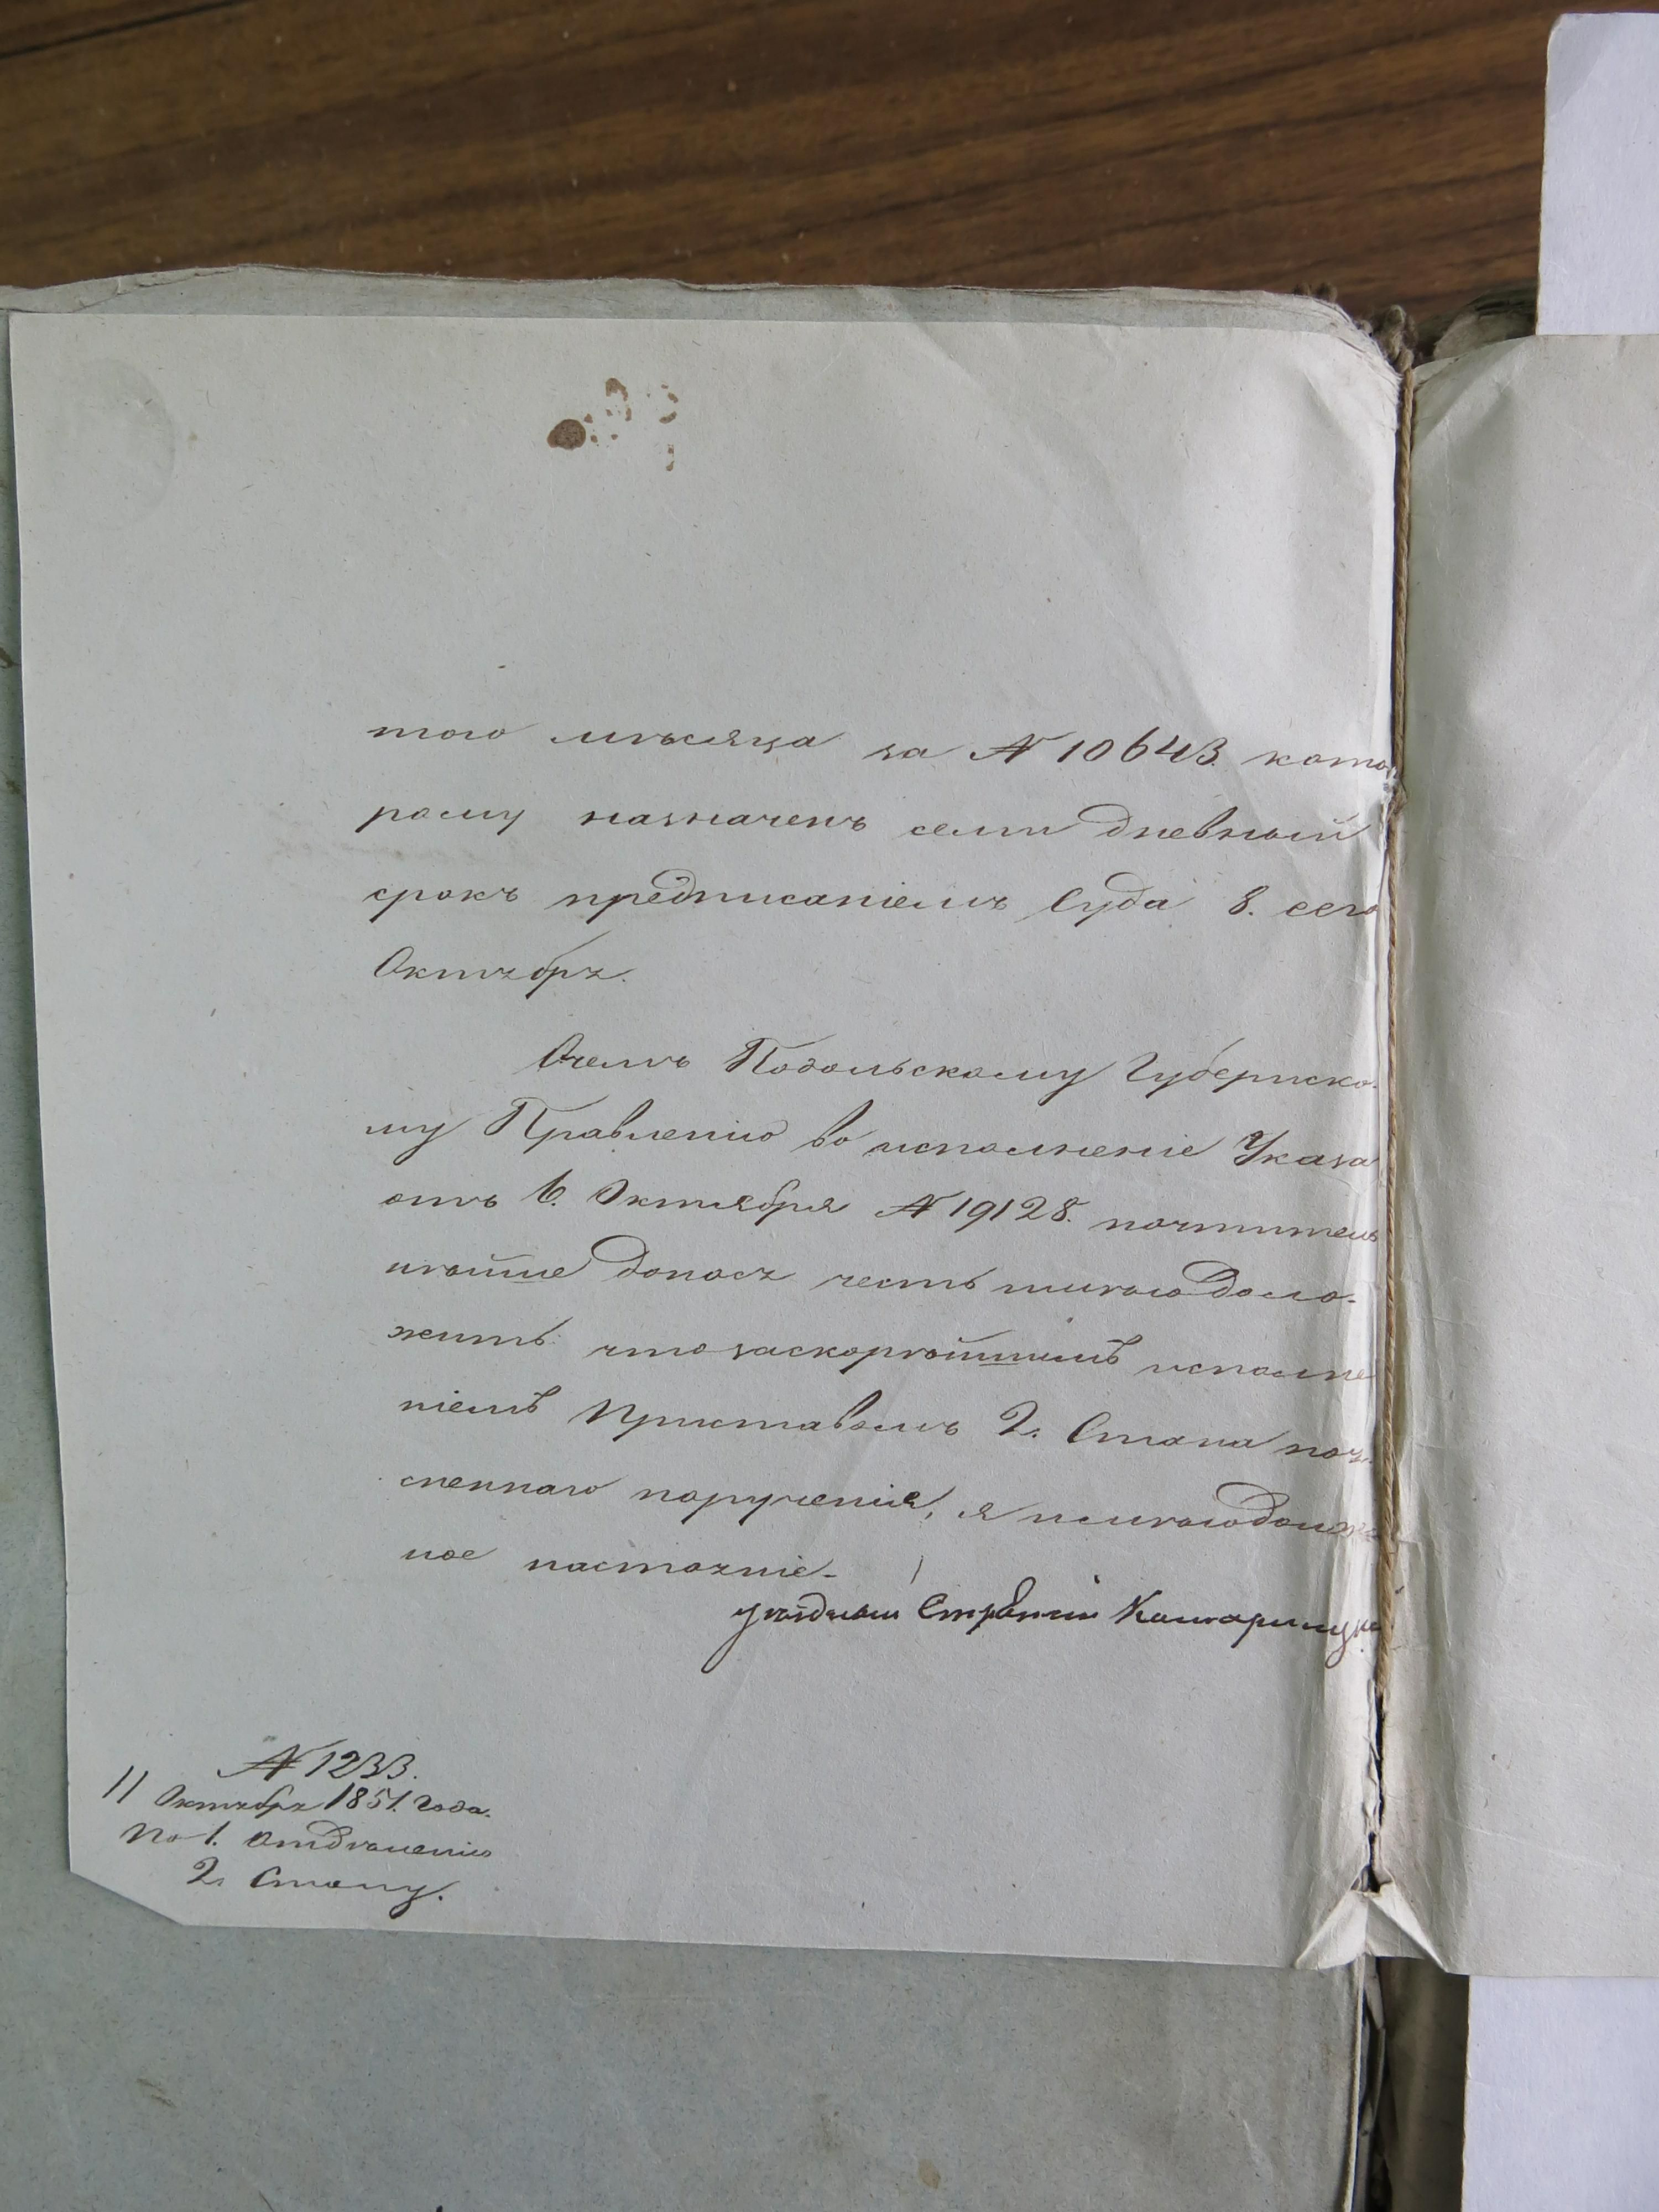 того мѣсяца за № 10643. кото
рому назначенъ семи дневный
срокъ предписаніемъ Суда 8. сего
Октября.
Очемъ Подольскому Губернско-
му Правленію во исполненіе Указа
отъ 6. Октября № 19128. почтитель
нѣйше донося честь имѣю доло-
жить что заскорѣйшимъ исполне
ніемъ Приставомъ 2. Стана
сненнаго порученія, я имѣю
ное настояніе.
уѣздный Стряпчій
№ 1233.
11 Октября 1851. Года.
По 1. Отдѣленію
2. Столу.